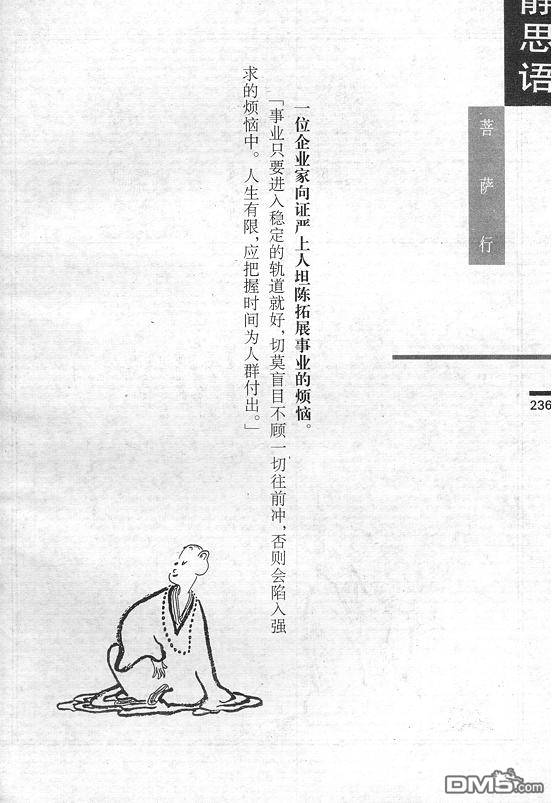 静思语
菩萨行
236
一位企业家向证严上人坦陈拓展事业的烦恼。
「事业只要进入稳定的轨道就好，切莫盲目不顾一切往前冲，否则会陷入强
求的烦恼中。人生有限，应把握时间为人群付出。」
DM5.com